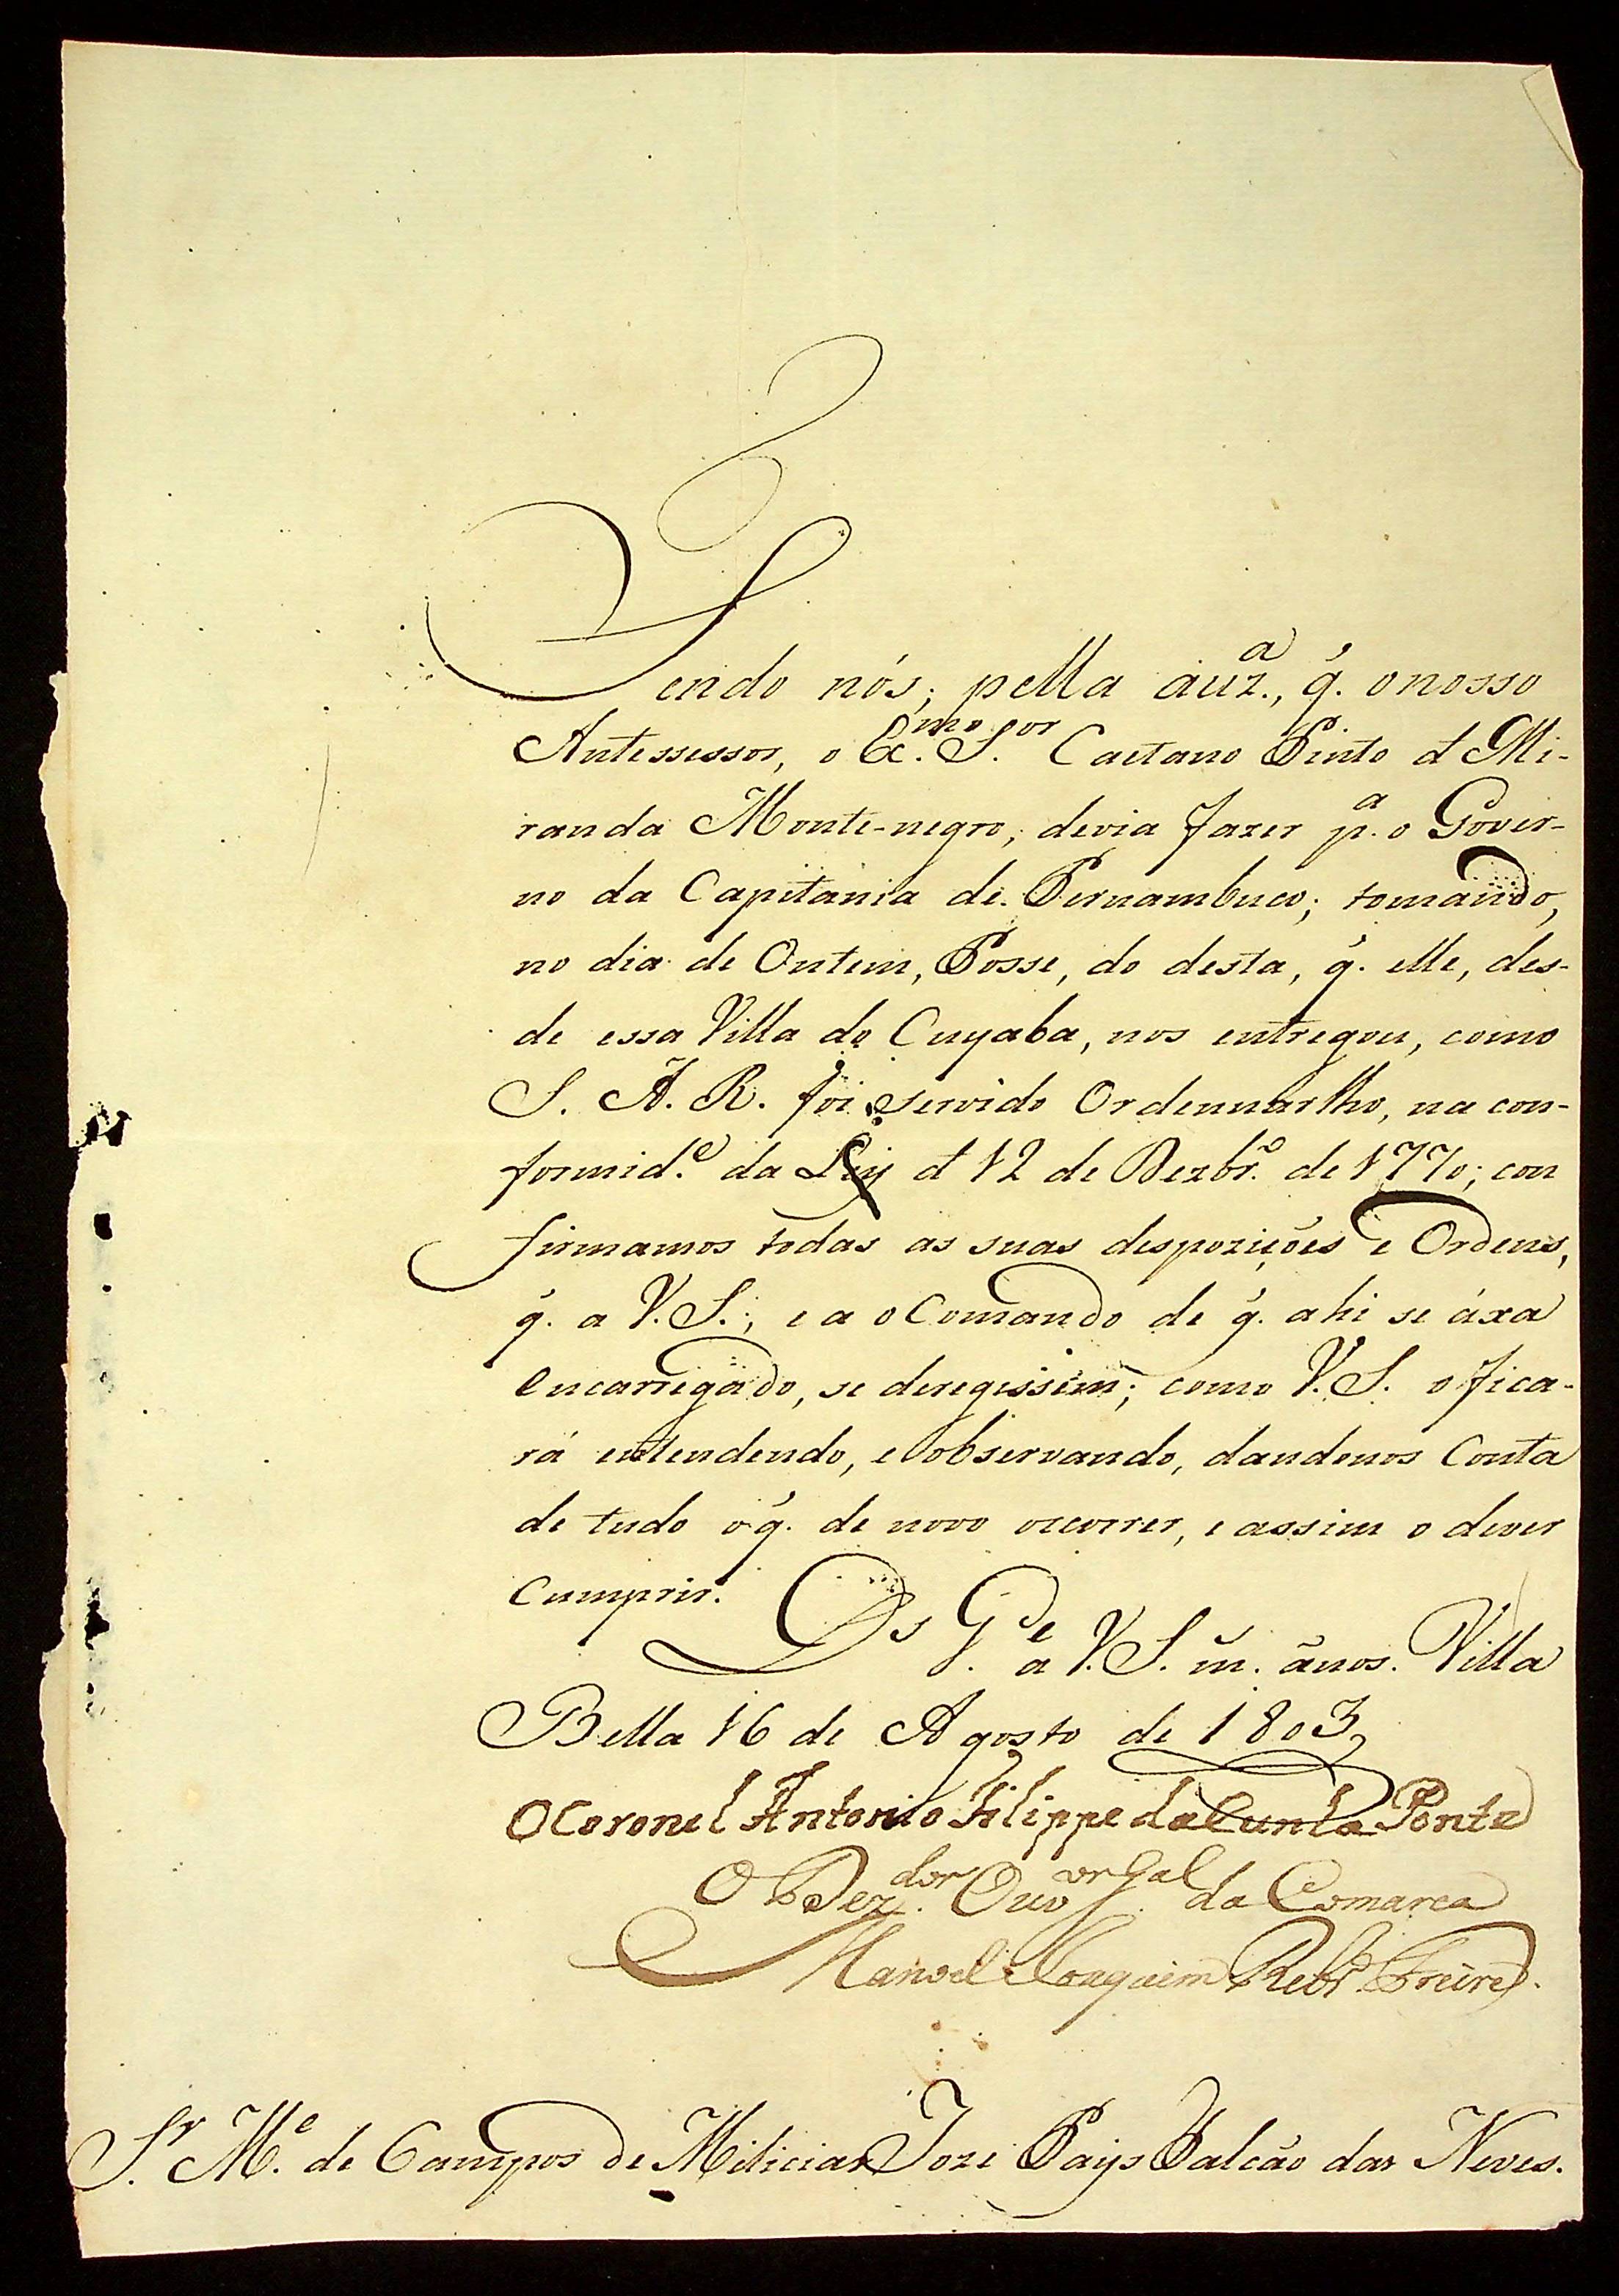 Sendo nós; pella auz.ª, q̃. o nosso
Antessessor, o Ex.mo S.or Caetano Pinto d Mi-
randa Monte-negro, devia fazer p.a o Gover-
no da Capitania de Pernambuco; tomando,
no dia de Ontem, Posse, do desta, q̃. elle, des-
de essa Villa do Cuyaba, nos entregou, como
S. A. R. foi servido Ordennarlho, na con-
formid.e da Ley d 12 de Dezbr.o de 1770; con
firmamos todas as suas despozições e Ordens,
q̃. a V. S.; e a o Comando de q̃. ahi se áxa
encarregado, se deregissem; como V. S. o fica-
rá entendendo, e observando, dandonos Conta
de tudo o q̃. de novo occorrer, e assim o dever
Cumprir.
Ds G.de a V. S. m̃. ãnos. Villa
Bella 16 de Agosto de 1803
O Coronel Antonio Filippe da Cunha Ponte
O Dez.dor Ouv.or G.al da Comarca
Manoel Joaquim Rebr.o Freire.
S.r M.e de Campos de Milicias Joze Pays Falcão das Neves.